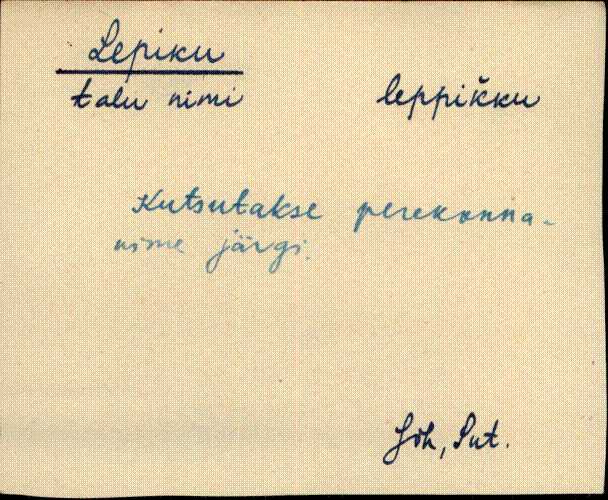 Lepiku
talu nimi leppikku
Kutsutakse perekonna-
nime järgi.
Jõh, Put.